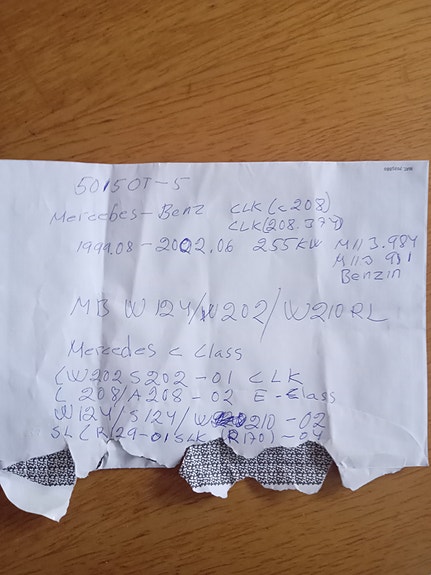 50150T-5
Mercedes-Benz CLK (C208)
CLK(208.374)
1999.08-2002.06 255KW M113.984
M113 981
Benzin
MB W124/W202/W210RL
Mercedes C Class
(W202 S202-01 CLK
C 208/A208-02 E-Class
W124/S124/W210-02
SL(R129-01 SLK (R170)-04